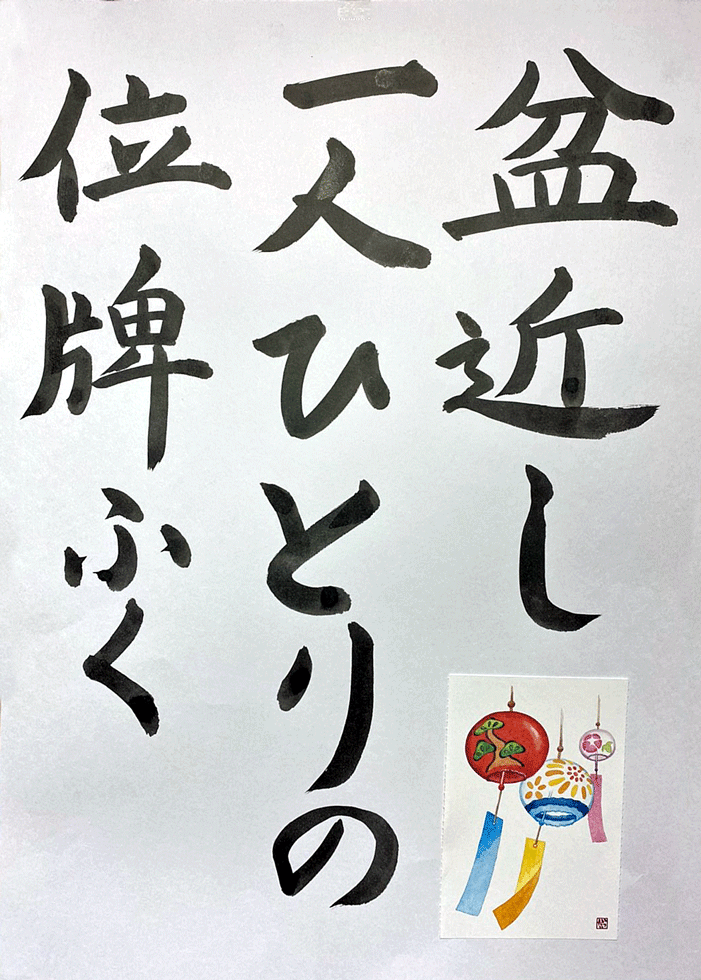 盆近し
一人ひとりの
位牌ふく